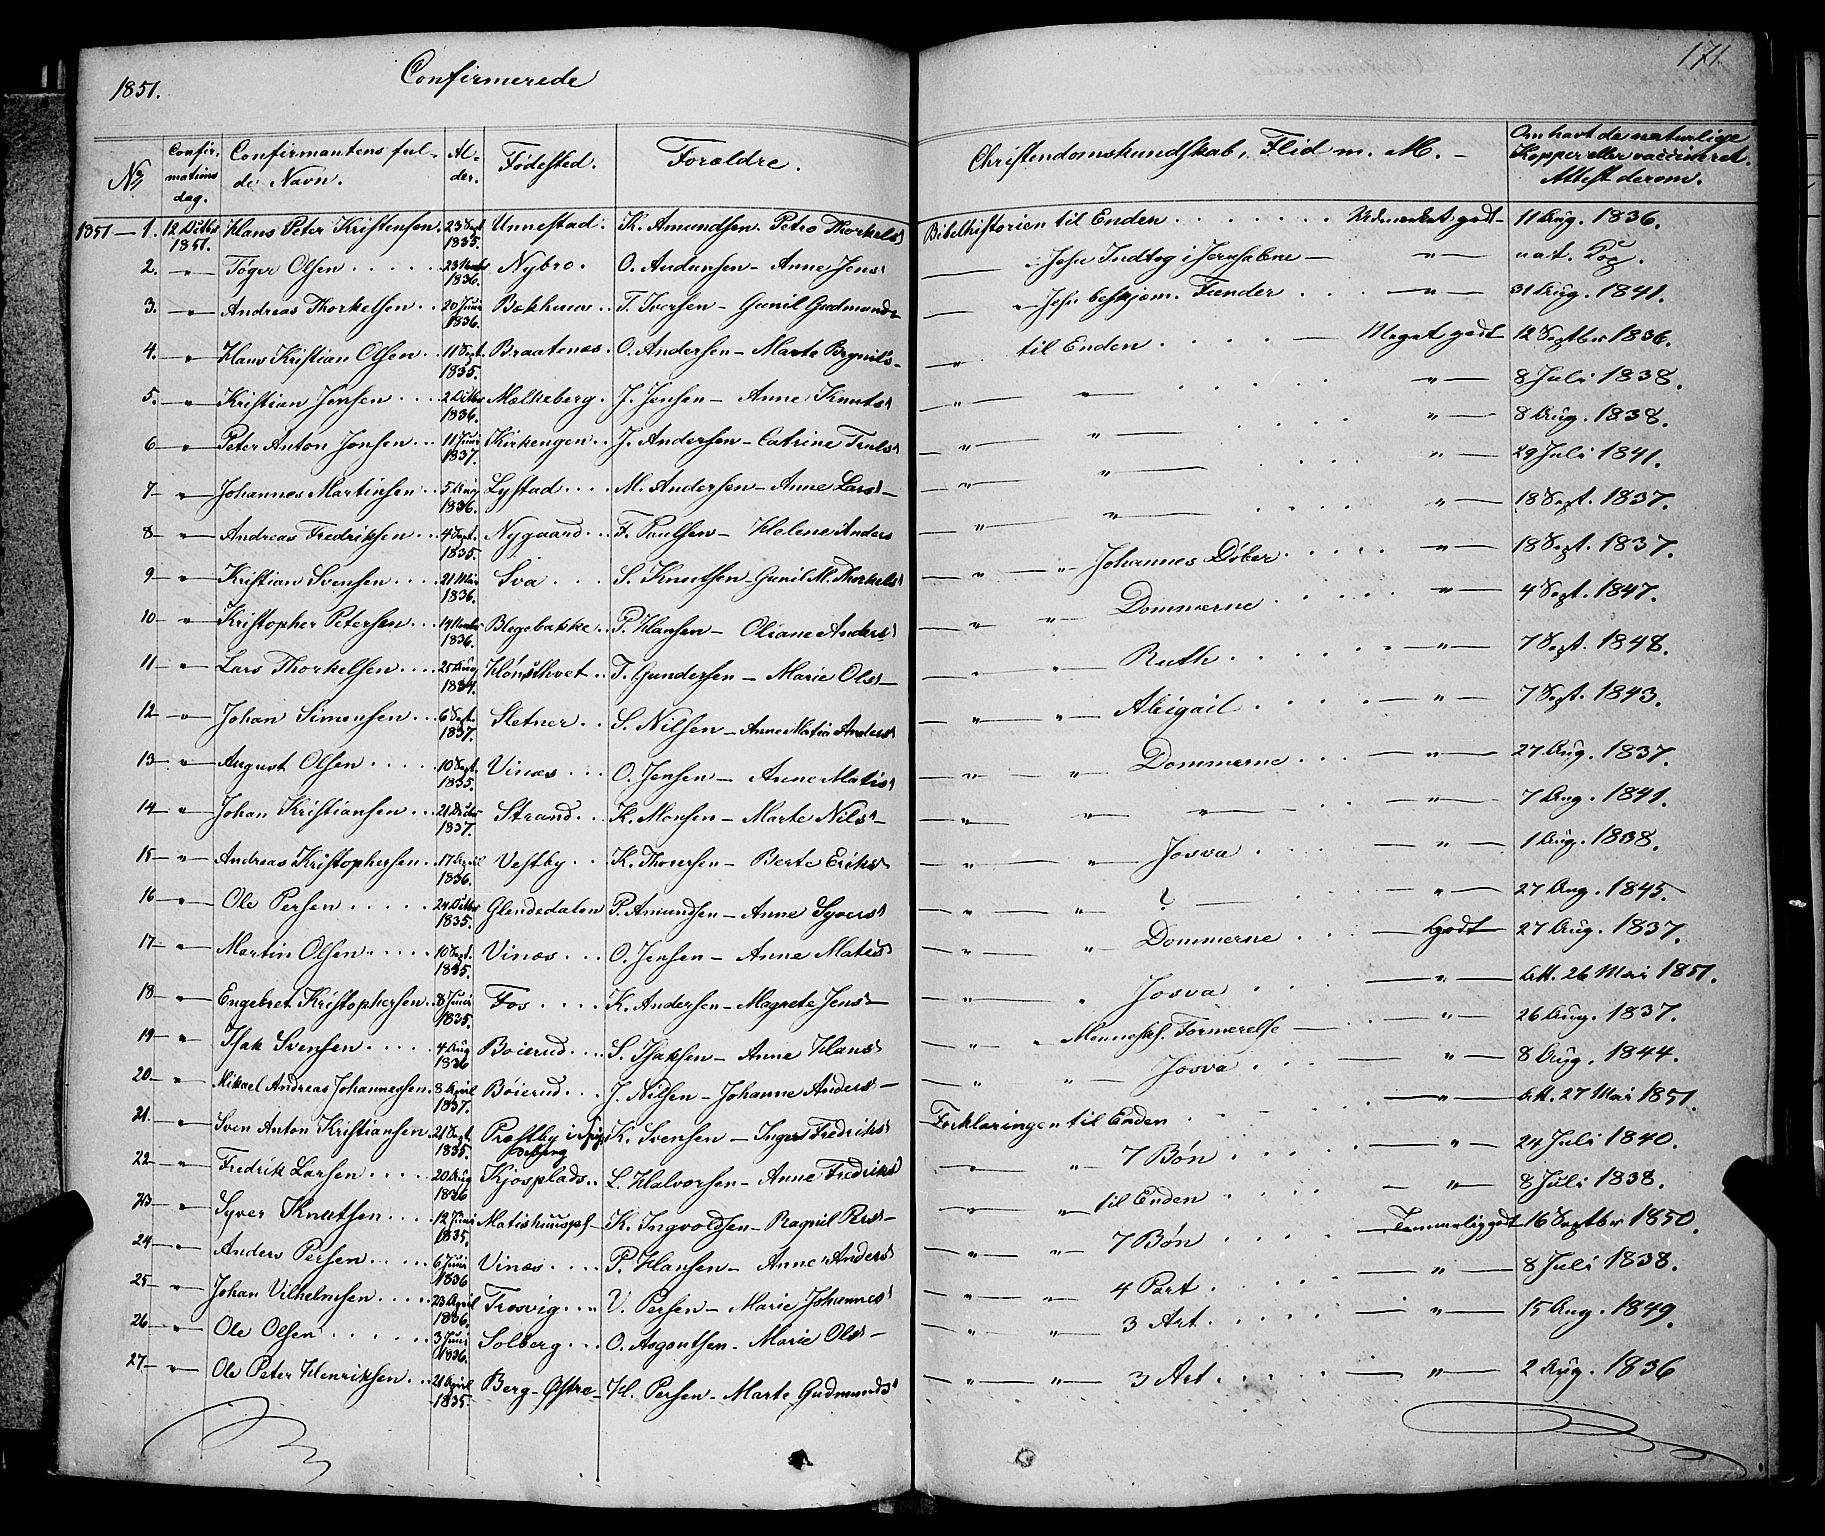 1851.
Confirmerede
171.
No
Confir-
mations
dag.
Confirmantens ful-
de Navn.
Al-
der.
Fødested.
Forældre.
Christendomskundskab, Flid m. M. –
Om havt de naturlige
Kopper eller vaccineret.
Attest derom.
1851 – 1. 12 Octbr 1851. Hans Peter Kristensen. 23 Sept 1835. Unnestad. K. Amundsen. Petro Thorkels Bibelhistorien til Enden Udmærket godt 11 Aug. 1836.
2. " Tøger Olsen 1836. Nybro. O. Andersen – Anne Jens – Jesu Indtog i Jerusalem – " nat. Kop.
3. " Andreas Thorkelsen 20 Juni 1836. Bækhuus T. Iversen – Gunil Gudmund – " Jesu beskjæm. Fiender " 31 Aug. 1841.
4. " Hans Kristian Olsen 11 Sept. 1835. Braatenæs. O. Andersen – Marte Brynils – " til Enden Meget godt 12 Septbr 1836.
5. " Kristian Jensen 2 Octbr 1836. Mælkeberg. J. Jensen – Anne Knuts – " " " 8 Juli 1838.
6 " Peter Anton Jensen 11 Juni 1837. Kirkengen J. Andersen – Catrine Truls – " " " 8 Aug. 1838.
7 " Johannes Martinsen 5 Aug 1836. Lystad M. Andersen – Anne Lars – " " " 29 Juli 1841.
8 " Andreas Fredriksen 4 Sept. 1835. Nygaard F. Paulsen – Helene Anders – " " " 18 Sept. 1837.
9 " Kristian Svensen 21 Mai 1836. Sva S. Knutsen – Gunil M. Thorkels – " " Johannes Døber " 18 Sept. 1837.
10 " Kristopher Petersen 1836. Blegebakke P. Hansen – Oliane Anders – " " Dommerne " 4 Sept. 1847.
11 " Lars Thorkelsen 25 Aug 1834. Hønsehvet T. Gundersen – Marie Ols – " Ruth " 7 Sept. 1848.
12 " Johan Simensen 6 Sept. 1837. Sletner S. Nilsen – Anne Matia Anders – " " Abigail " 7 Sept. 1843.
13 " August Olsen 10 Sept. 1835. Vinæs O. Jensen – Anne Matis – " " Dommerne " 27 Aug. 1837.
14 " Johan Kristiansen 21 Octbr 1837. Strand K. Monsen – Marte Nils – " " " " 7 Aug. 1841.
15 " Andreas Kristophersen 17 April 1836. Vestby K. Thoresen – Berte Eriks – " " Josva " 1 Aug. 1838.
16 " Ole Persen 24 Octbr 1835. Glendedalen P. Amundsen – Anne Syvers – " " " 27 Aug. 1845.
17 " Martin Olsen 10 Sept. 1835. Vinæs O. Jensen – Anne Matis – " " Dommerne Godt 27 Aug. 1837.
18 " Engebret Kristophersen 8 Juni 1835. Fos K. Andersen – Magrete Jens – " " Josva " Att. 26 Mai 1851.
19 " Isak Svensen 4 Aug 1836 Boierud S. Isaksen – Anne Hans – " " Mennesk. Fornerelse " 26 Aug. 1837.
20 " Mikael Andreas Johannessen. 8 April 1837. Bøierud J. Nilsen – Johanne Anders – " " Josva " 8 Aug. 1844.
21. " Sven Anton Kristiansen 21 Sept. 1835. Præstby i Spydeberg K. Svensen – Inger Fredriks Forklaringen til Enden " Att. 27 Mai 1851.
22 " Fredrik Larsen 20 Aug 1836 Kjosplads L. Halvorsen – Anne Fredriks – " " 7 Bøn " 24 Juli 1840.
23 " Syver Knutsen 12 Juni 1835. Matishuuspl – K. Ingvoldsen – Ragnil Pers – " " til Enden " 8 Juli 1838.
24 " Anders Persen 6 Juni 1836 Vinæs P. Hansen – Anne Anders – " " 7 Bøn Temmelig godt 16 Septbr 1850.
25 " Johan Vilhelmsen 23 April 1836. Trosvig V. Persen – Marie Johannes – " " 4 Part " 8 Juli 1838.
26 " Ole Olsen 3 Juni 1836. Solberg O. Asgoutsen – Marie Ols – " " 3 Art " 15 Aug. 1849.
27 " Ole Peter Henriksen 21 April 1835. Berg – Østre – H. Persen – Marte Gudmunds – " " 3 Art " 2 Aug. 1836